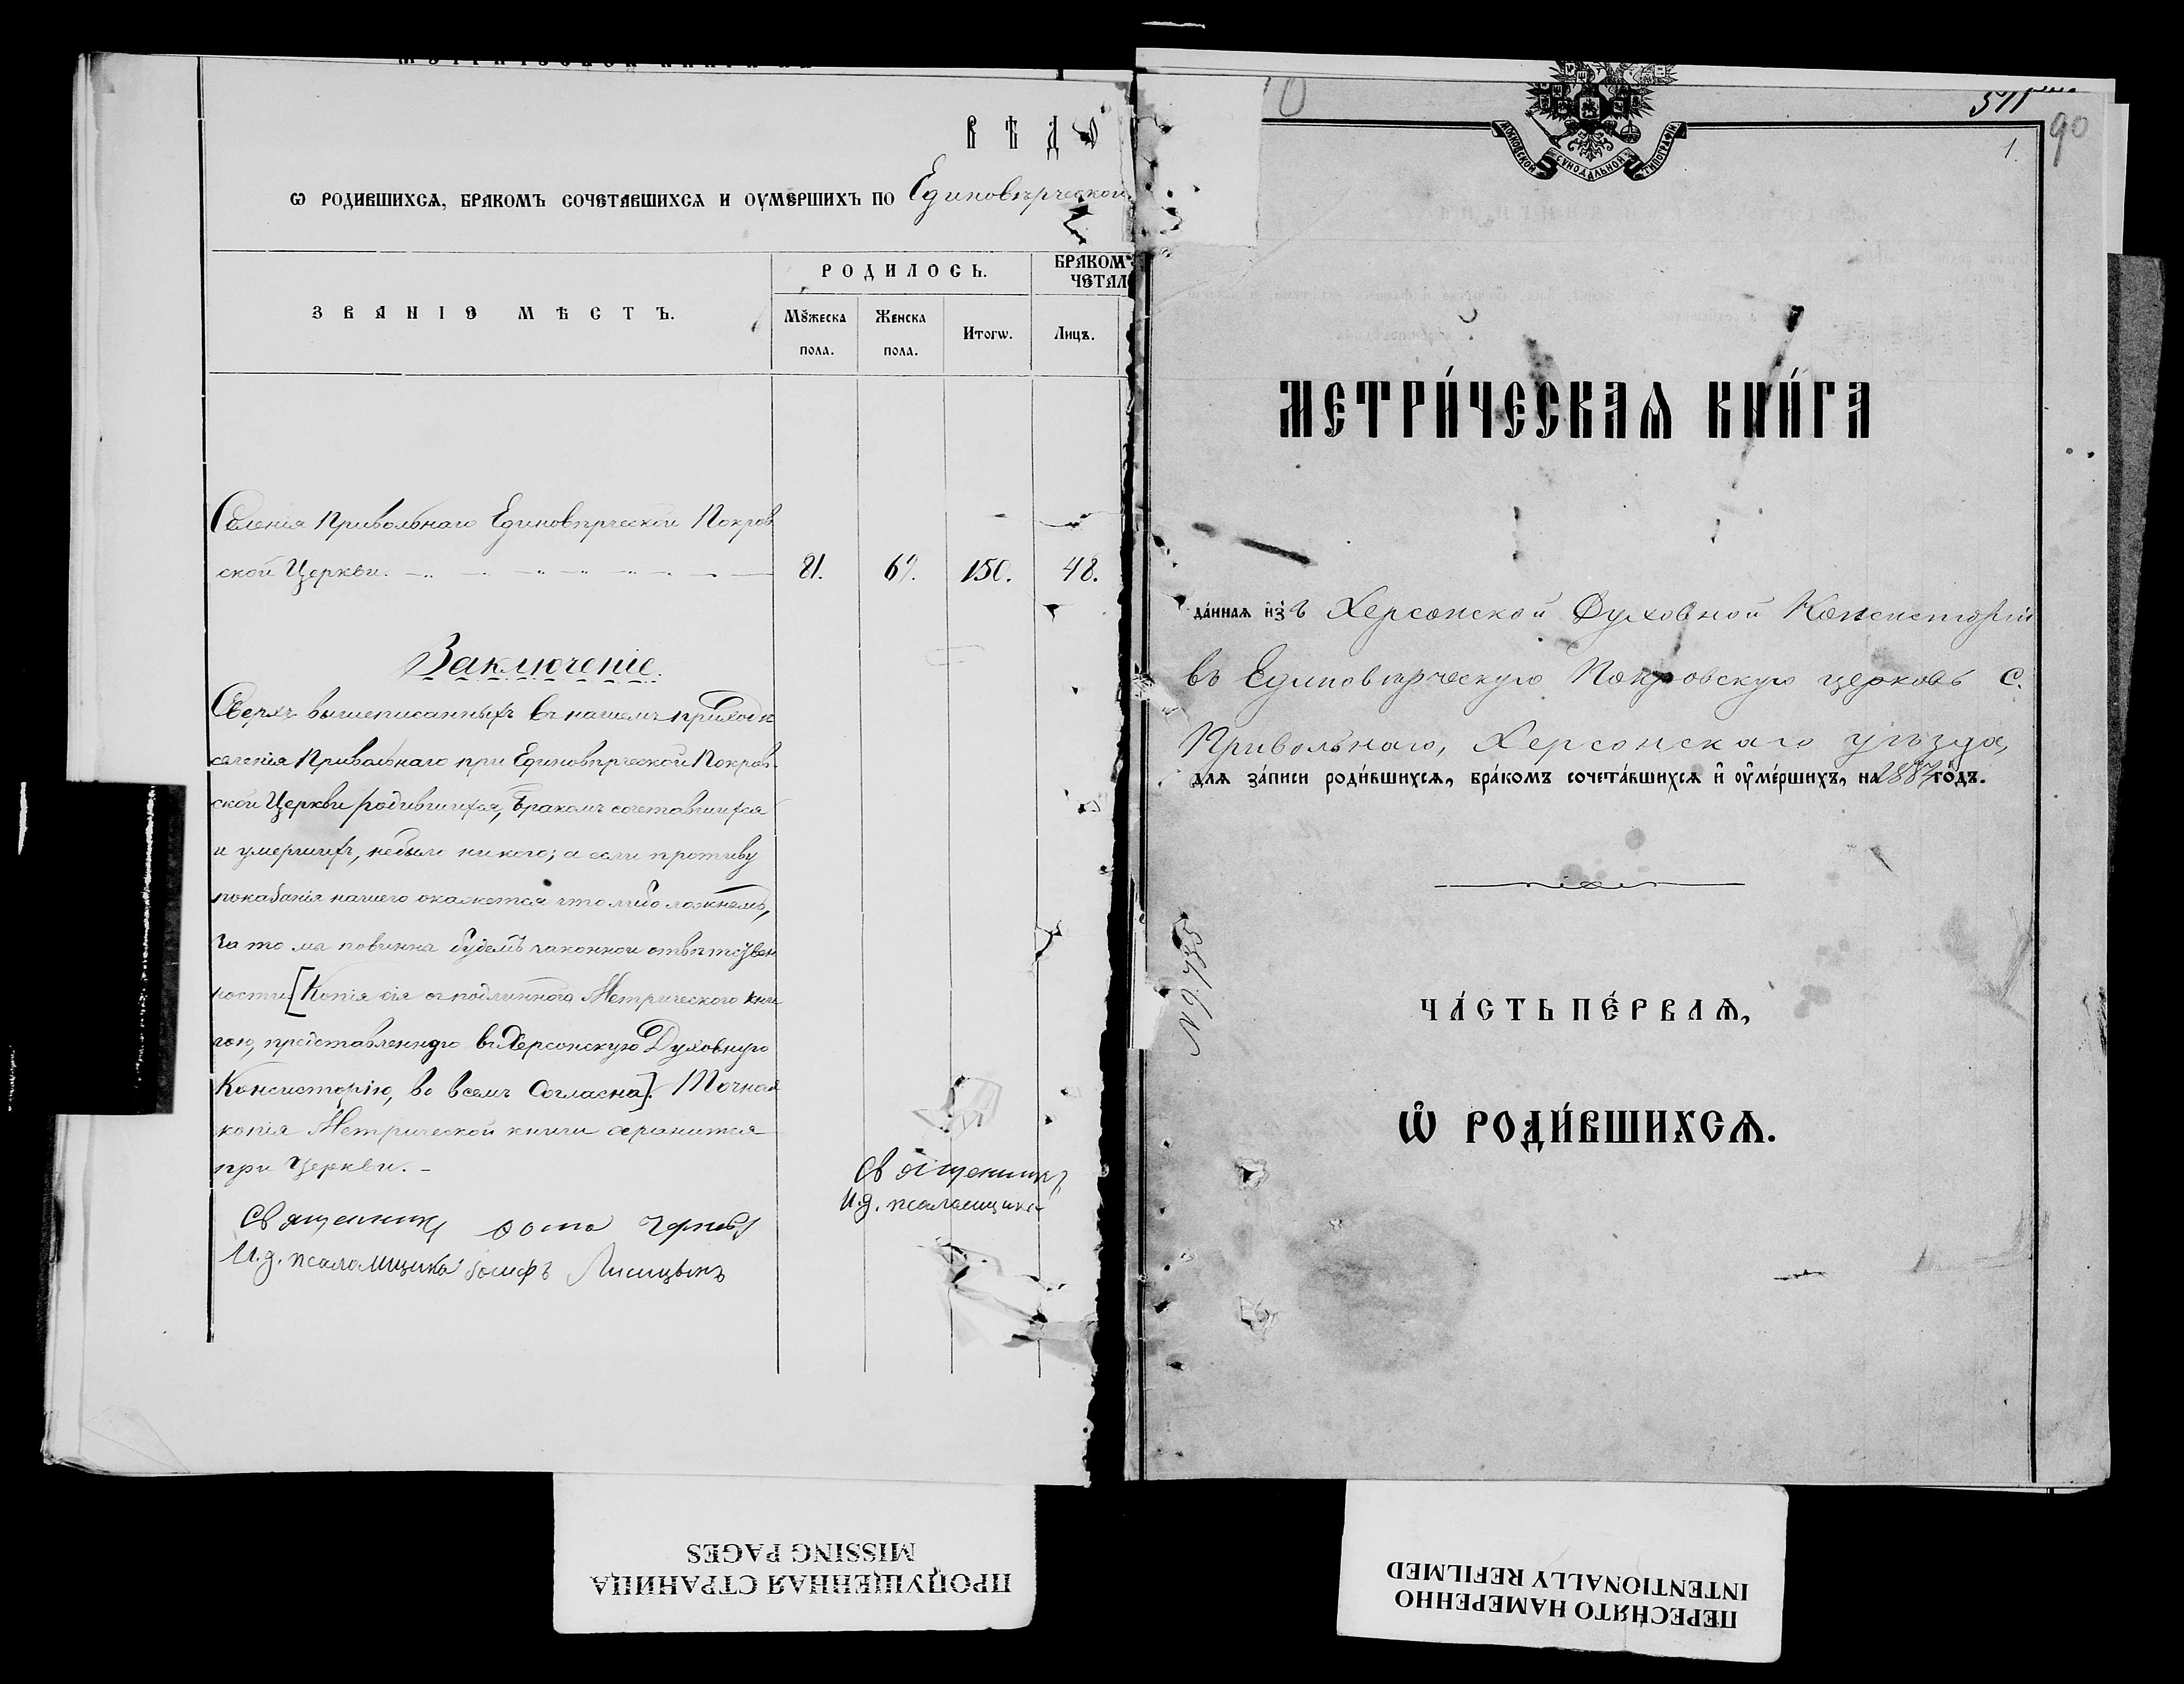 ВѢДО
Ѡ РОДИВШИХСѦ, БРАКОМЪ СОЧЕТАВШИХСѦ И ОУМЕРШИХЪ ПО Единовѣрческой
ЗВАНІЕ МѢСТЪ.
РОДИЛОСЬ.
БРАКОМЪ
ЧЕТАЛ
Мꙋжеска пола.
Женска пола.
Итогѡ.
Лицъ.
Селенія Привольнаго Единовѣрческой Покров
ской Церкви. 81. 69. 150. 48.
Заключеніе.
Сверхъ вышеписанныхъ въ нашемъ приходѣ
селенія Привольнаго при Единовѣрческой Покров-
ской Церкви родившихся, бракомъ сочетавшихся
и умершихъ, небыло никого; а если противу
показанія нашего окажется что либо ложнымъ,
за то мы повинны будемъ законной отвѣтствен
ности [Копія сія съ подлинною Метрическою кни
гою, представленною въ Херсонскую Духовную
Консисторію, во всемъ согласна]. Точная
копія Метрической книги хранится
при Церкви. –
Священникъ Фома
И.д. псаломщика Іосифъ Лисицынъ
Священникъ
И.д. псаломщика
МОСКОВСКОЙ СѴНОДАЛЬНОЙ ТИПОГРАФІИ
511
90
1.
МЕТРИ́ЧЕСКАѦ КНИ́ГА
да́ннаѧ изъ Херсонской Духовной Консисторіи
въ Единовѣрческую Покровскую церковь с.
Привольнаго, Херсонскаго уѣзда,
длѧ за́писи роди́вшихсѧ, бра́комъ сочета́вшихсѧ и҆ оу҆ме́ршихъ, на 1884 го́дъ.
№ 9735
ЧА́СТЬ ПЕ́РВАѦ,
Ѡ҆ РОДИ́ВШИХСѦ.
ПРОПУЩЕННАЯ СТРАНИЦА
MISSING PAGES
ПЕРЕСНЯТО НАМЕРЕННО
INTENTIONALLY REFILMED